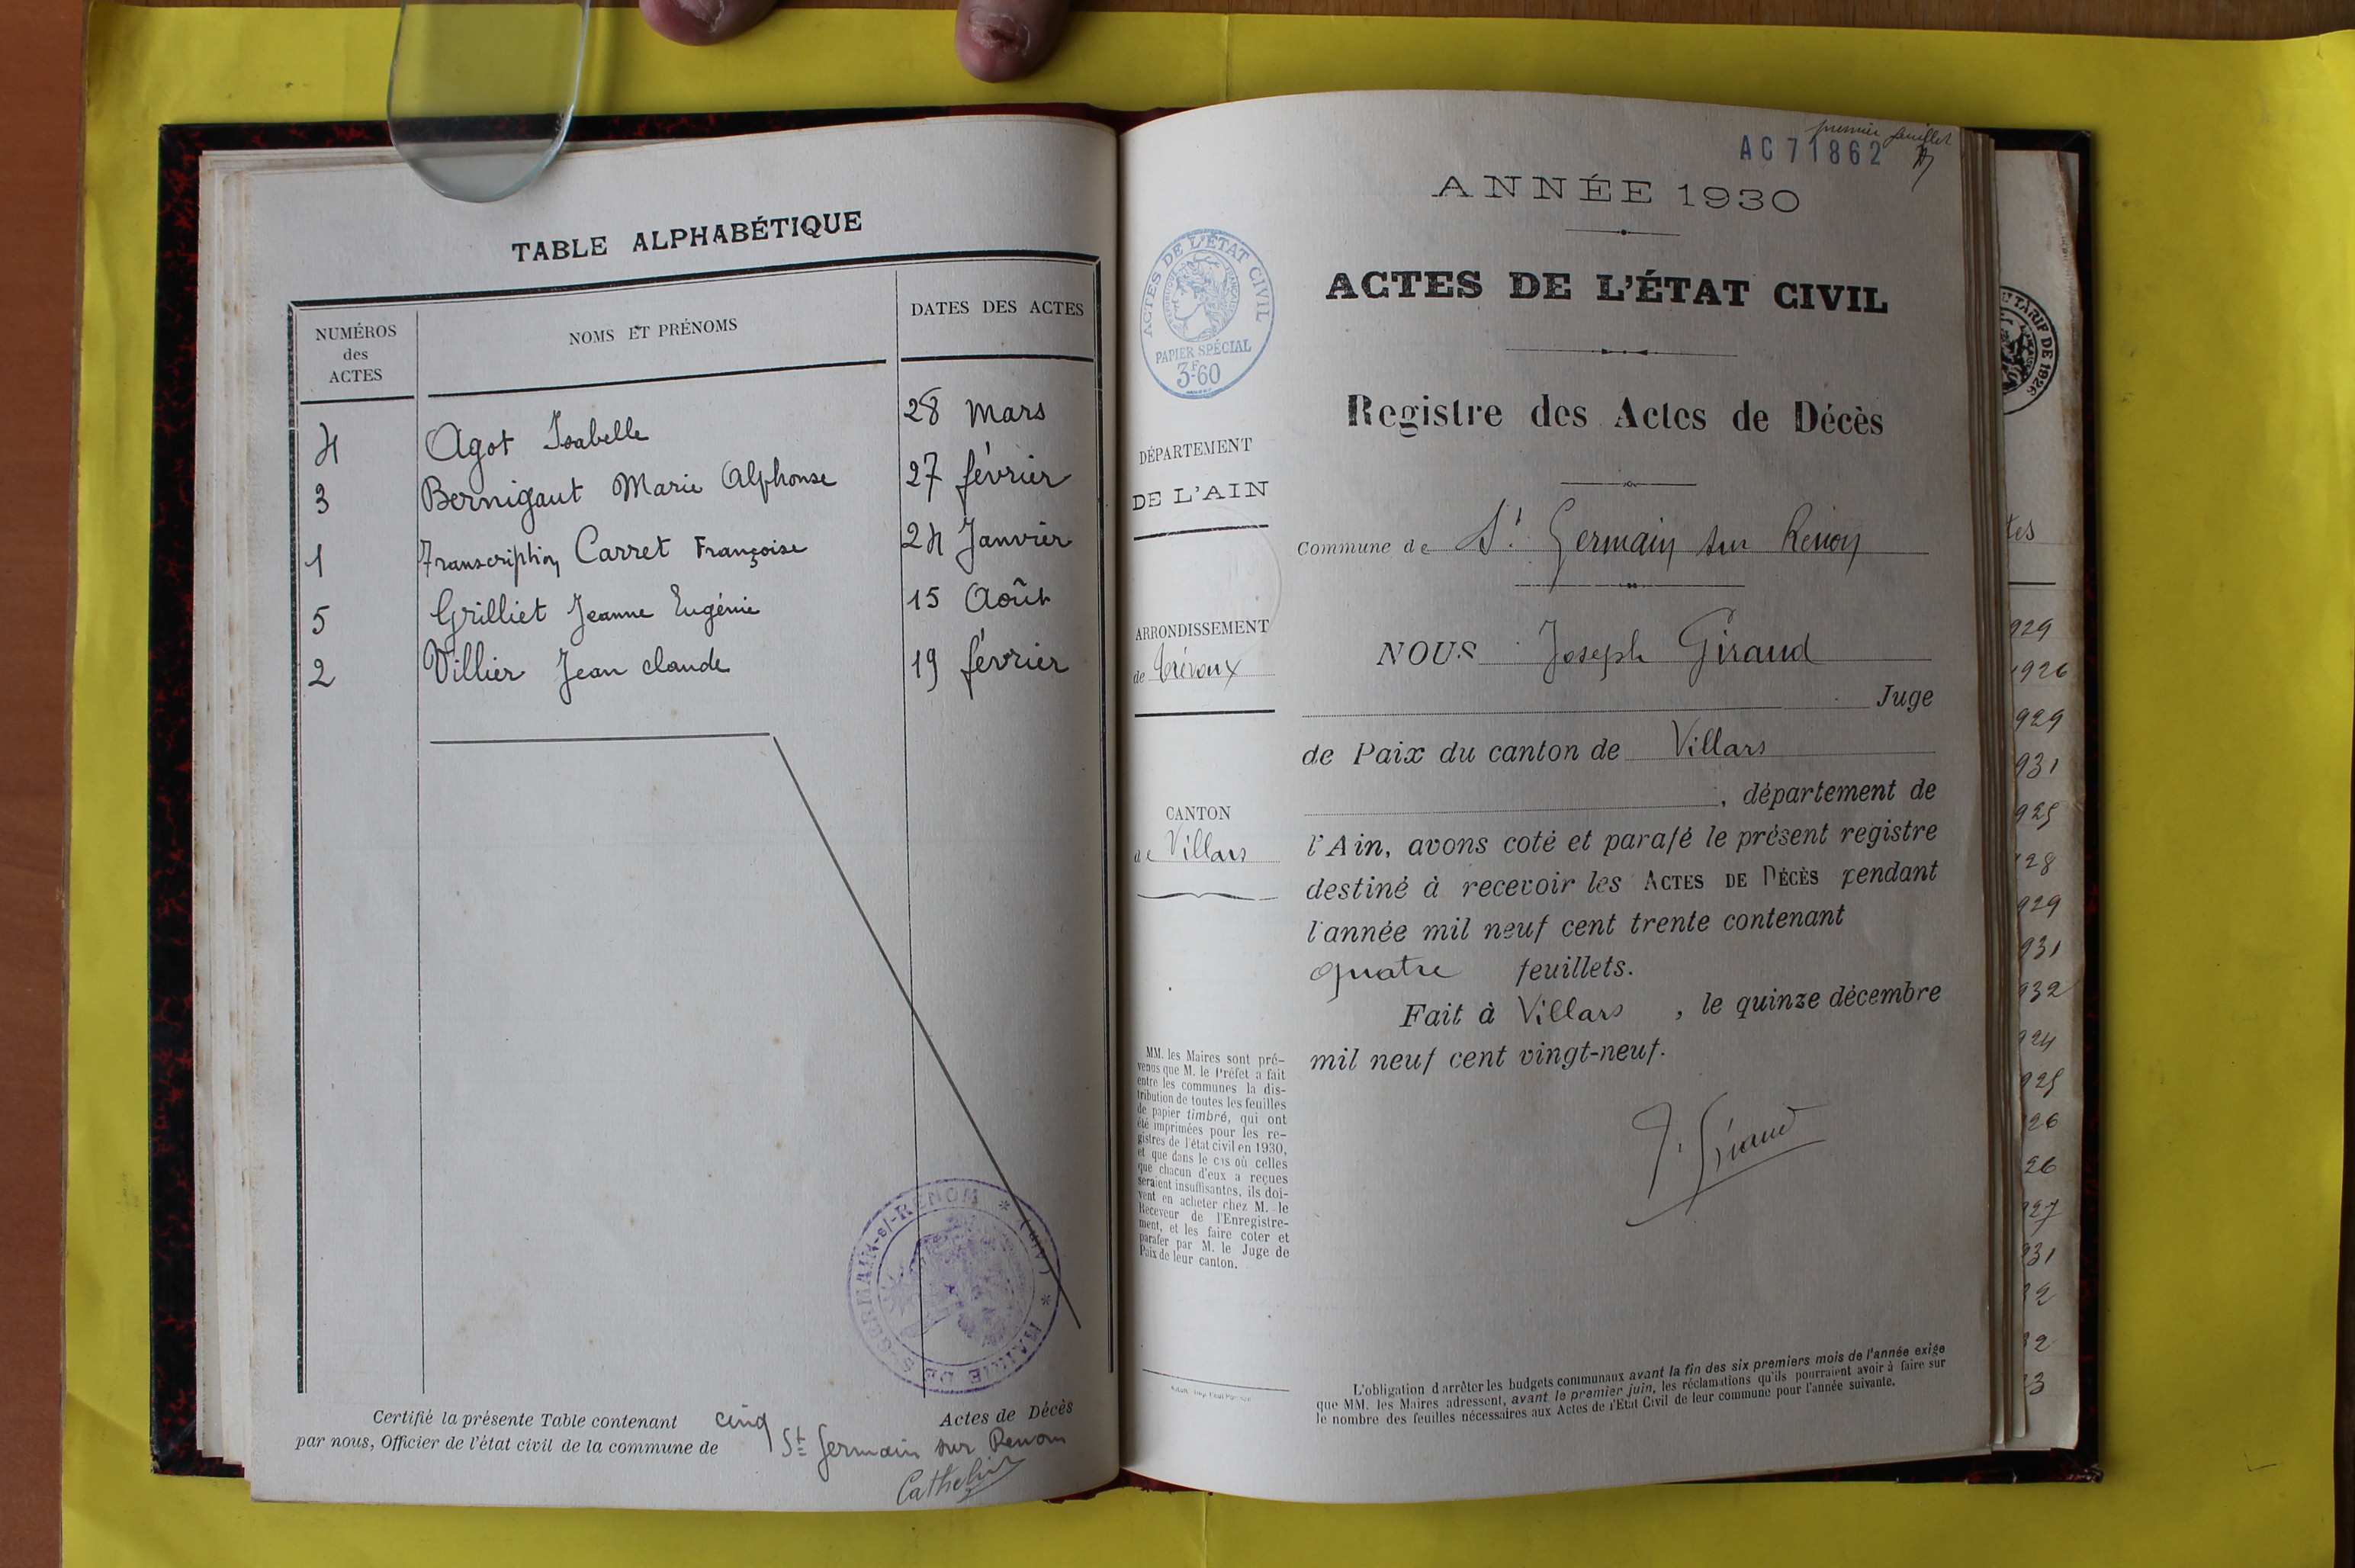 TABLE ALPHABÉTIQUE
NUMÉROS des ACTES
NOMS ET PRÉNOMS
DATES DES ACTES
4 Agot Isabelle 28 Mars
3 Bernigaut Marie Alphonse 27 février
1 Transcription Carret Françoise 24 Janvier
5 Grilliet Jeanne Eugénie 15 Août
2 Villier Jean claude 19 février
MAIRIE DE St-GERMAIN-s/-RENON * (AIN) *
Certifié la présente Table contenant cinq Actes de Décès
par nous, Officier de l'état civil de la commune de St Germain sur Renom
Cathelin
premier feuillet
AC 71862
ANNÉE 1930
ACTES DE L'ÉTAT CIVIL
PAPIER SPÉCIAL
3F60
ACTES DE L'ÉTAT CIVIL
Registre des Actes de Décès
DÉPARTEMENT
DE L'AIN
Commune de St Germain sur Renon
ARRONDISSEMENT
de Trévoux
NOUS Joseph Giraud
Juge
de Paix du canton de Villars
, département de
CANTON
de Villars
l'Ain, avons coté et parafé le présent registre
destiné à recevoir les ACTES DE DÉCÈS pendant
l'année mil neuf cent trente contenant
quatre feuillets.
Fait à Villars , le quinze décembre
mil neuf cent vingt-neuf.
J. Giraud
MM. les Maires sont pré-
venus que M. le Préfet a fait
entre les communes la dis-
tribution de toutes les feuilles
de papier timbré, qui ont
été imprimées pour les re-
gistres de l'état civil en 1930,
et que dans le cas où celles
que chacun d'eux a reçues
seraient insuffisantes, ils doi-
vent en acheter chez M. le
Receveur de l'Enregistre-
ment, et les faire coter et
parafer par M. le Juge de
Paix de leur canton.
L'obligation d'arrêter les budgets communaux avant la fin des six premiers mois de l'année exige
que MM. les Maires adressent, avant le premier juin, les réclamations qu'ils pourraient avoir à faire sur
le nombre des feuilles nécessaires aux Actes de l'Etat Civil de leur commune pour l'année suivante.
TARIF DE 1926
929
926
929
931
925
28
929
931
932
924
925
26
26
927
931
2
2
3